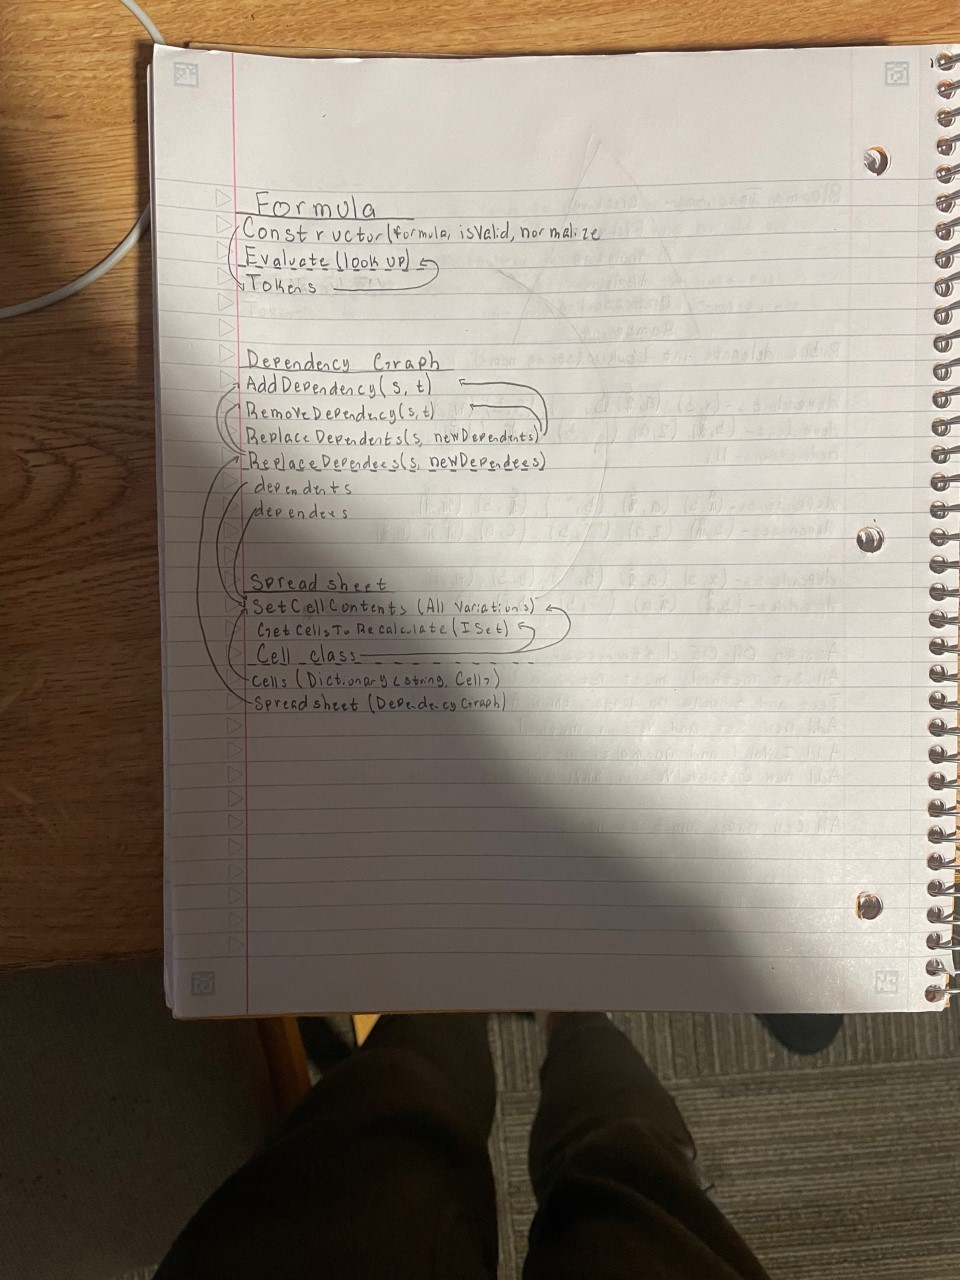 Formula
Constructor(formula, isValid, normalize
Evaluate (look up)
Tokens
Dependency Graph
AddDependency(s, t)
RemoveDependency(s,t)
ReplaceDependents(s, newDependents)
ReplaceDependees(s, newDependees)
dependents
dependees
Spreadsheet
SetCellContents (All Variations)
GetCellsToRecalculate(ISet)
Cell class
Cells (Dictionary<string, Cell>)
Spreadsheet (DependencyGraph)